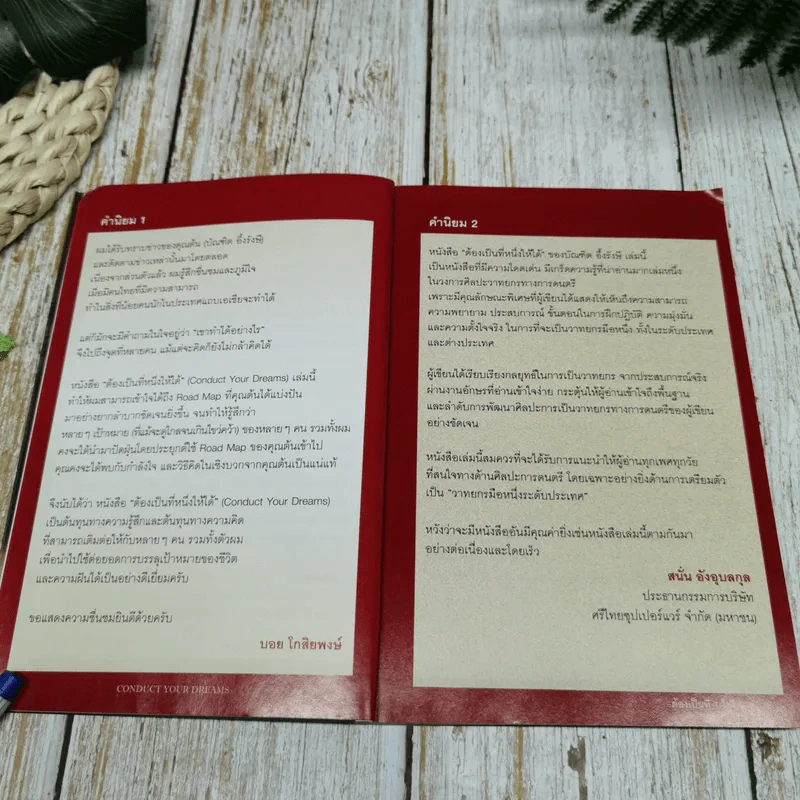 คำนิยม 1
ผมได้รับทราบข่าวของคุณต้น (บัณฑิต อึ้งรังษี)
และติดตามข่าวเหล่านั้นมาโดยตลอด
เนื่องจากส่วนตัวแล้ว ผมรู้สึกชื่นชมและภูมิใจ
เมื่อมีคนไทยที่มีความสามารถ
ทำในสิ่งที่น้อยคนนักในประเทศแถบเอเชียจะทำได้
แต่ก็มักจะมีคำถามในใจอยู่ว่า "เขาทำได้อย่างไร"
จึงไปถึงจุดที่หลายคน แม้แต่จะคิดก็ยังไม่กล้าคิดได้
หนังสือ "ต้องเป็นที่หนึ่งให้ได้" (Conduct Your Dreams) เล่มนี้
ทำให้ผมสามารถเข้าใจได้ถึง Road Map ที่คุณต้นได้แบ่งปัน
มาอย่างยากลำบากชัดเจนยิ่งขึ้น จนทำให้รู้สึกว่า
หลายๆ เป้าหมาย (ที่แม้จะดูไกลจนเกินไขว่คว้า) ของหลายๆ คน รวมทั้งผม
คงจะได้นำมาปัดฝุ่นโดยประยุกต์ใช้ Road Map ของคุณต้นเข้าไป
คุณคงจะได้พบกับกำลังใจ และวิธีคิดในเชิงบวกจากคุณต้นเป็นแน่แท้
จึงนับได้ว่า หนังสือ "ต้องเป็นที่หนึ่งให้ได้" (Conduct Your Dreams)
เป็นต้นทุนทางความรู้สึกและต้นทุนทางความคิด
ที่สามารถเติมต่อให้กับหลายๆ คน รวมทั้งตัวผม
เพื่อนำไปใช้ต่อยอดการบรรลุเป้าหมายของชีวิต
และความฝันได้เป็นอย่างดีเยี่ยมครับ
ขอแสดงความชื่นชมยินดีด้วยครับ
บอย โกสิยพงษ์
CONDUCT YOUR DREAMS
คำนิยม 2
หนังสือ "ต้องเป็นที่หนึ่งให้ได้" ของบัณฑิต อึ้งรังษี เล่มนี้
เป็นหนังสือที่มีความโดดเด่น มีเกร็ดความรู้ที่น่าอ่านมากเล่มหนึ่ง
ในวงการศิลปะวาทยกรทางการดนตรี
เพราะมีคุณลักษณะพิเศษที่ผู้เขียนได้แสดงให้เห็นถึงความสามารถ
ความพยายาม ประสบการณ์ ขั้นตอนในการฝึกปฏิบัติ ความมุ่งมั่น
และความตั้งใจจริง ในการที่จะเป็นวาทยกรมือหนึ่ง ทั้งในระดับประเทศ
และต่างประเทศ
ผู้เขียนได้เรียบเรียงกลยุทธ์ในการเป็นวาทยกร จากประสบการณ์จริง
ผ่านงานอักษรที่อ่านเข้าใจง่าย กระตุ้นให้ผู้อ่านเข้าใจถึงพื้นฐาน
และลำดับการพัฒนาศิลปะการเป็นวาทยกรทางการดนตรีของผู้เขียน
อย่างชัดเจน
หนังสือเล่มนี้สมควรที่จะได้รับการแนะนำให้ผู้อ่านทุกเพศทุกวัย
ที่สนใจทางด้านศิลปะการดนตรี โดยเฉพาะอย่างยิ่งด้านการเตรียมตัว
เป็น "วาทยกรมือหนึ่งระดับประเทศ"
หวังว่าจะมีหนังสืออันมีคุณค่ายิ่งเช่นหนังสือเล่มนี้ตามกันมา
อย่างต่อเนื่องและโดยเร็ว
สนั่น อังอุบลกุล
ประธานกรรมการบริษัท
ศรีไทยซุปเปอร์แวร์ จำกัด (มหาชน)
ต้องเป็นที่